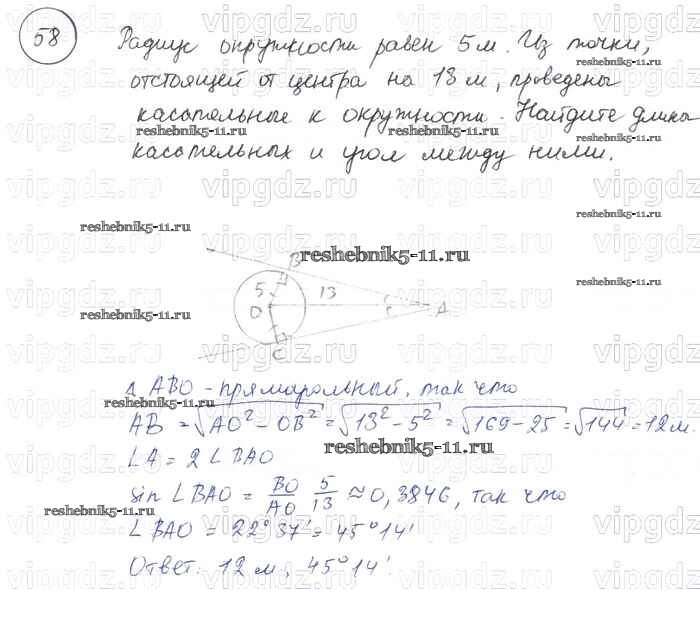 58 Радиус окружности равен 5 м. Из точки,
отстоящей от центра на 13 м, проведены
касательные к окружности. Найдите длина
касательных и угол между ними.
reshebnik5-11.ru
B
5 13
O A
C
Δ ABO - прямоугольный, так что
AB = √AO² - OB² = √13² - 5² = √169 - 25 = √144 = 12 м.
∠A = 2 ∠BAO
sin ∠BAO = BO/AO 5/13 ≈ 0,3846, так что
∠BAO = 22°37' = 45°14'
Ответ: 12 м, 45°14'.
vipgdz.ru